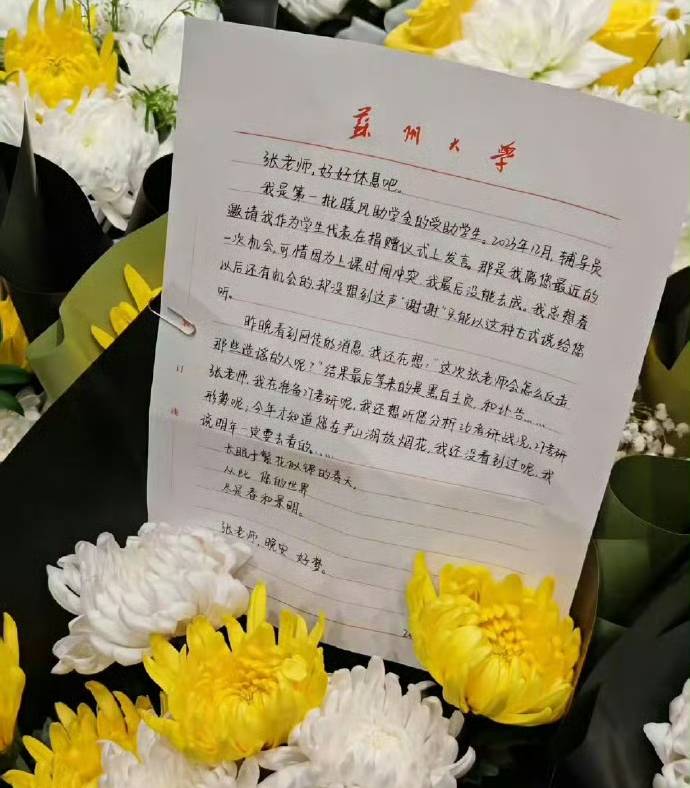 蘇州大學
张老师，好好休息吧。
我是第一批暖风助学金的受助学生。2023年12月，辅导员
邀请我作为学生代表在捐赠仪式上发言。那是我离您最近的
一次机会，可惜因为上课时间冲突，我最后没能去成。我总想着
以后还有机会的，却没想到这声“谢谢”只能以这种方式说给您
听。
昨晚看到网传的消息，我还在想：“这次张老师会怎么反击
那些造谣的人呢？”结果最后等来的是黑白主页，和讣告……
张老师，我在准备27考研呢，我还想听您分析26考研战况，27考研
形势呢；今年才知道您在尹山湖放烟花，我还没看到过呢，我
说明年一定要去看的……
长眠于繁花似锦的春天，
从此 您的世界
尽是春和景明。
张老师，晚安 好梦。